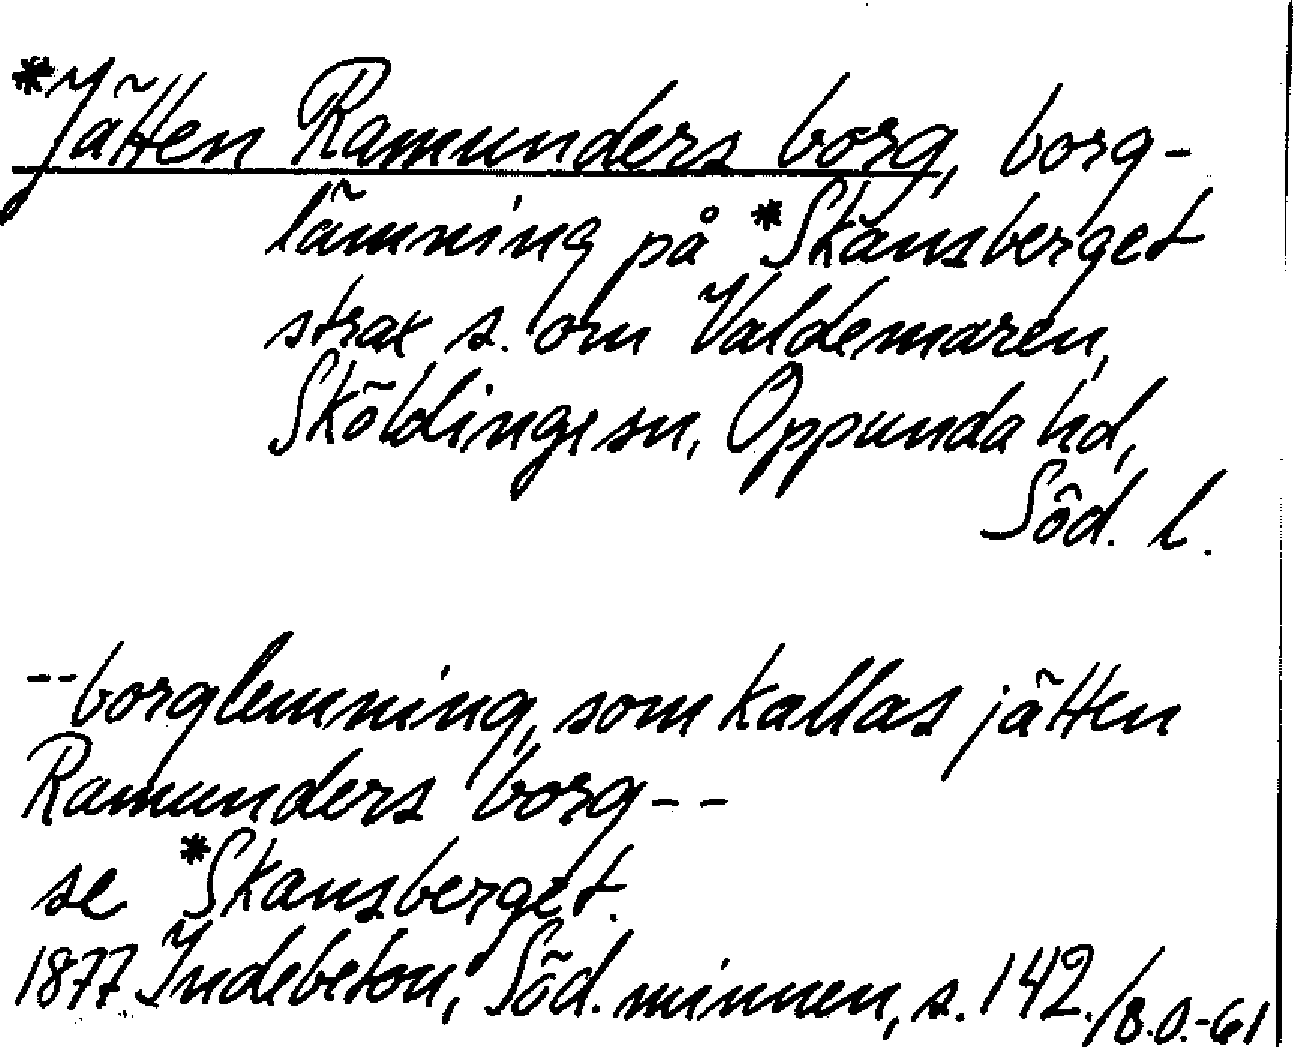 *Jätten Ramunders borg, borg-
lämning på *Skansberget
strax s. om Valdemaren,
Sköldinge sn, Oppunda hd,
Söd. l.
--borglemning, som kallas jätten
Ramunders borg--
se *Skansberget.
1877 Indebetou, Söd. minnen, s. 142./B.O.-61